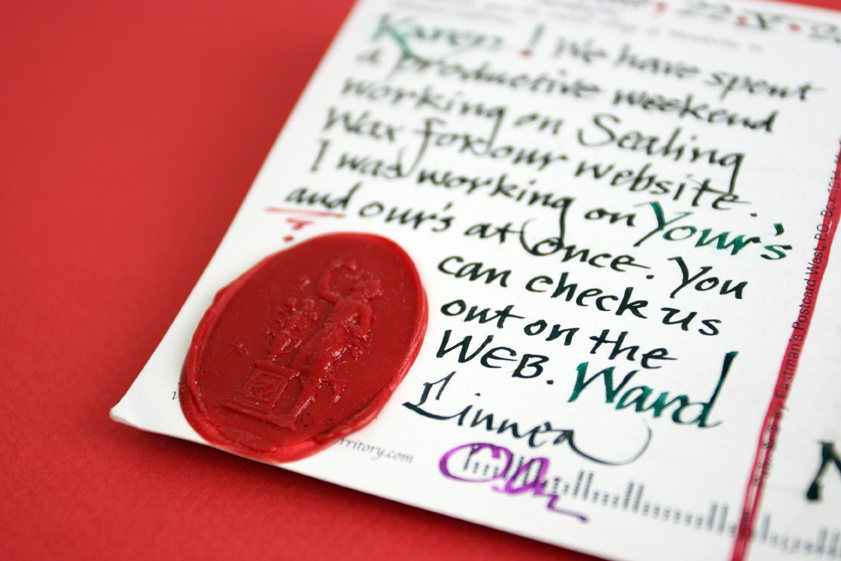 22.X.
Karen! We have spent
a productive weekend
working on Sealing
Wax for our website.
I was working on Your's
and our's at once. You
can check us
out on the
WEB. Ward
Linnea
rritory.com
Eastman's Postcard West, P.O. Box